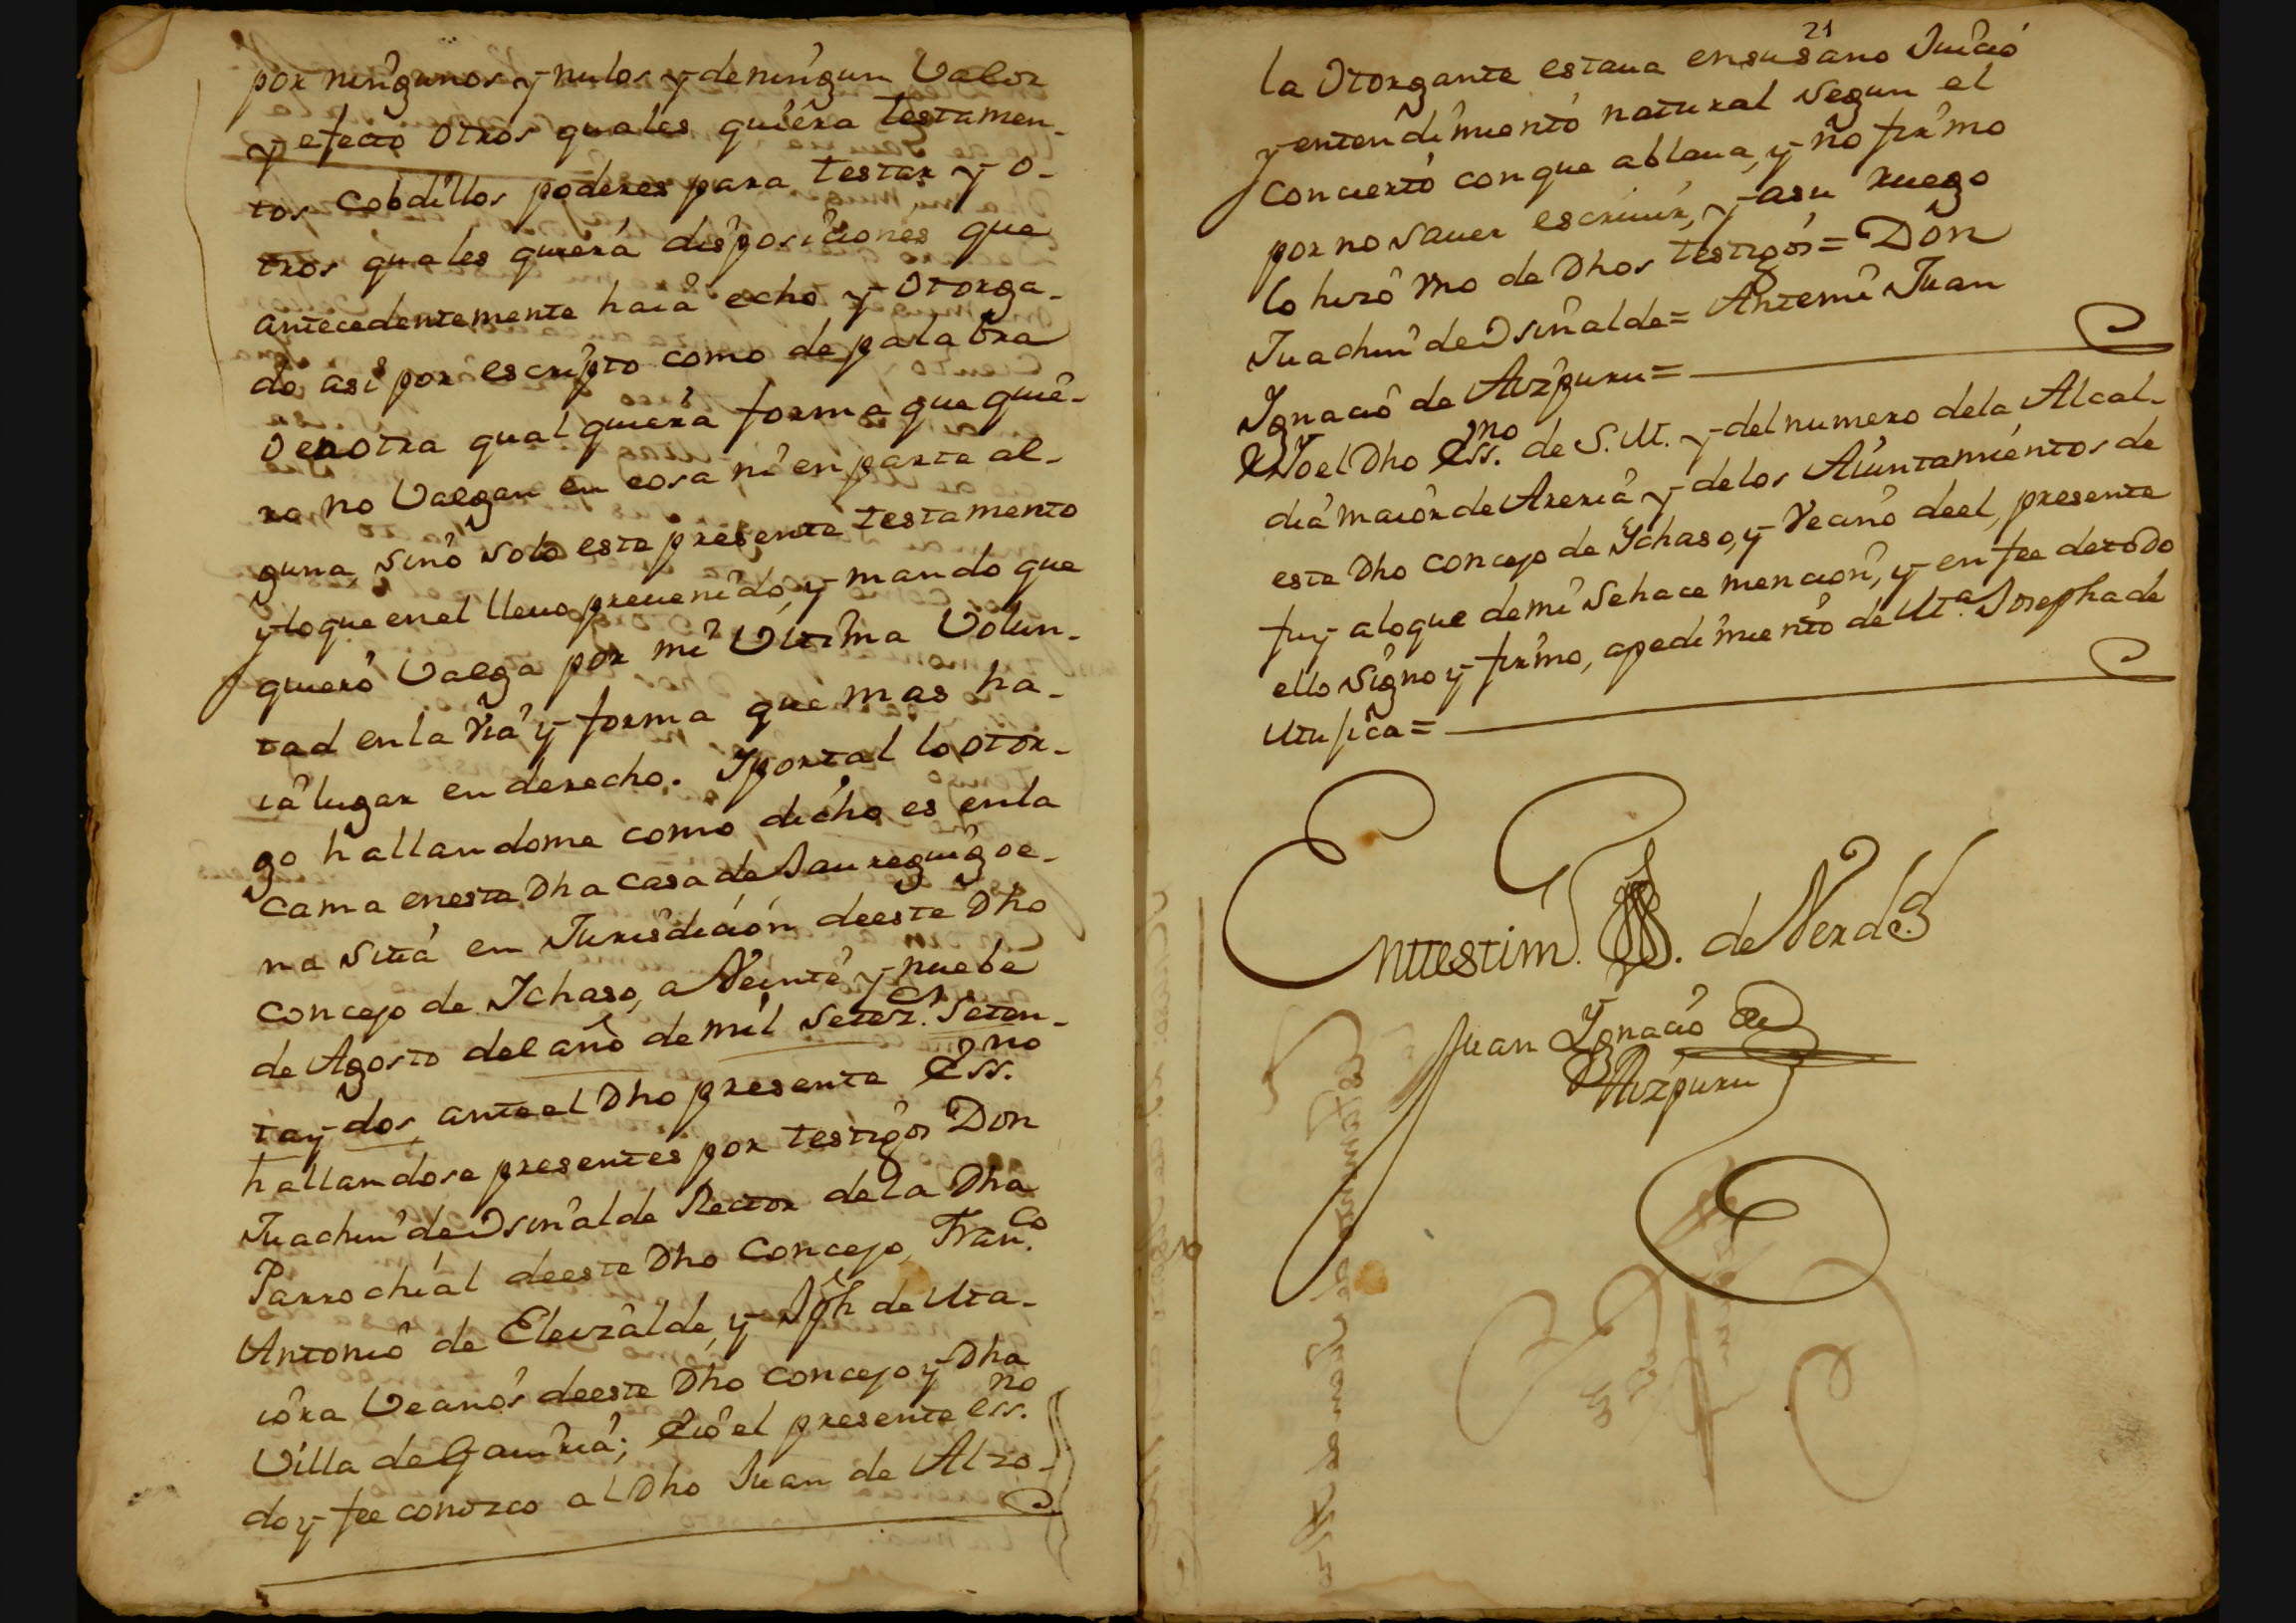 por ningunos y nulos y de ningun Valor
y efecto Otros quales quiera testamen-
tos Cobdillos poderes para testar y o-
tros quales quiera disposiciones que
antecedentemente haia echo y Otorga-
do asi por escripto como de palabra
O en otra qual quiera forma que quie-
ro no Valgan en cosa ni en parte al-
guna sino solo este presente testamento
y lo que en el lleuo preuenido, y mando que
quiero Valga por mi Ultima Volun-
tad en la Via y forma que mas ha-
ia lugar en derecho. Y por tal lo otor-
go hallandome como dicho es en la
cama en esta Dha casa de Jaureguigoe-
na sita en Jurisdicion de este Dho
concejo de Ichaso, a Veinte y nuebe
de Agosto del año de mil setez.s Seten-
ta y dos, ante el Dho presente Ess.no
hallandose presentes por testigos Don
Juachin de Osinalde Rector de la Dha
Parrochial de este Dho Concejo, Fran.co
Antonio de Eleizalde, y Jph de Uta-
iora Vecinos de este Dho concejo y Dha
Villa de Gauiria; E io el presente ess.no
doy fee conozco al Dho Juan de Alzo-
21
la Otorgante estaua en su sano Juicio
y entendimiento natural segun el
concierto con que ablaua, y no firmo
por no sauer escriuir, y a su ruego
lo hizo Vno de Dhos testigos = Don
Juachin de Osinalde = Ante mi Juan
Ignacio de Aizpuru =
E Yo el Dho Ess.no de S.M. y del numero de la Alcal-
dia maior de Areria y de los Aiuntamientos de
este Dho concejo de Ichaso, y Vecino de el, presente
fuy a lo que de mi se hace mencion, y en fee de todo
ello signo y firmo, a pedimiento de M.a Josepha de
Mujica =
En testim. de Verd.
Juan Ignacio de
Aizpuru